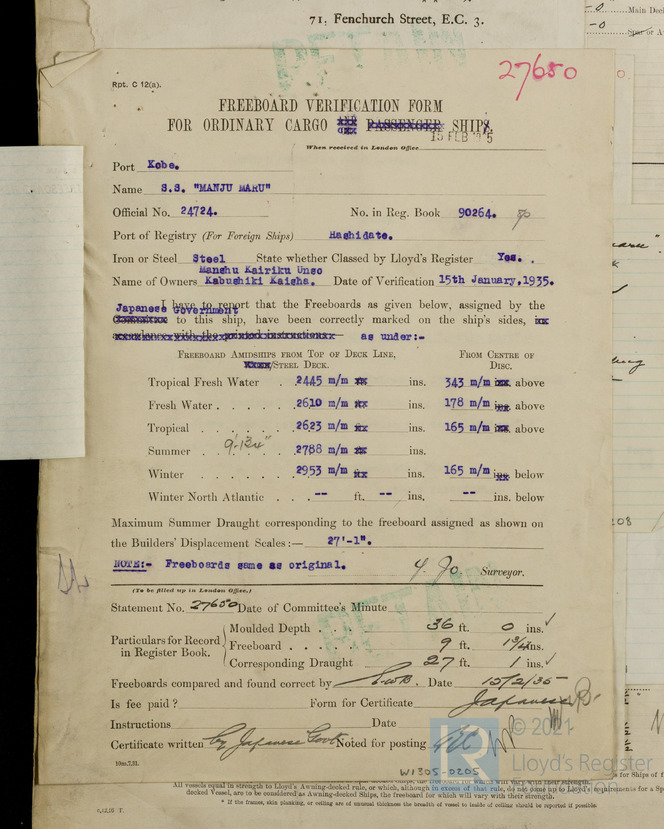 71, Fenchurch Street, E.C. 3.
Main Dec
27650
Rpt. C 12(a).
FREEBOARD VERIFICATION FORM
FOR ORDINARY CARGO AND PASSENGER SHIPS.
15 FEB
When received in London Office
Port Kobe.
Name S.S. "MANJU MARU"
Official No. 24724. No. in Reg. Book 90264. 70
Port of Registry (For Foreign Ships) Hashidate.
Iron or Steel Steel State whether Classed by Lloyd's Register Yes.
Manshu Kairiku Unso
Name of Owners Kabushiki Kaisha. Date of Verification 15th January, 1935.
I have to report that the Freeboards as given below, assigned by the
Japanese Government
to this ship, have been correctly marked on the ship's sides,
as under:-
FREEBOARD AMIDSHIPS FROM TOP OF DECK LINE, FROM CENTRE OF
/STEEL DECK. DISC.
Tropical Fresh Water 2445 m/m ins. 343 m/m ins. above
Fresh Water 2610 m/m ins. 178 m/m ins. above
Tropical 2623 m/m ins. 165 m/m ins. above
Summer 9-1¾" 2788 m/m ins.
Winter 2953 m/m ins. 165 m/m ins. below
Winter North Atlantic -- ft. -- ins. -- ins. below
Maximum Summer Draught corresponding to the freeboard assigned as shown on
the Builders' Displacement Scales:— 27'-1".
NOTE:- Freeboards same as original.
Surveyor.
(To be filled up in London Office.)
Statement No. 27650 Date of Committee's Minute
Moulded Depth 36 ft. 0 ins.
Particulars for Record in Register Book. Freeboard 9 ft. 1¾ ins.
Corresponding Draught 27 ft. 1 ins.
Freeboards compared and found correct by Date 15/2/35
Is fee paid? Form for Certificate Japanese
Instructions Date
Certificate written by Japanese Govt Noted for posting
10m,7.31.
W1305-0205
© 2021
Lloyd's Register
All vessels equal in strength to Lloyd's Awning-decked rule, or which, although in excess of that rule, do not come up to Lloyd's requirements for a Sp
decked Vessel, are to be considered as Awning-decked Ships, the freeboard for which will vary with their strength.
* If the frames, skin planking, or ceiling are of unusual thickness the breadth of vessel to inside of ceiling should be reported if possible.